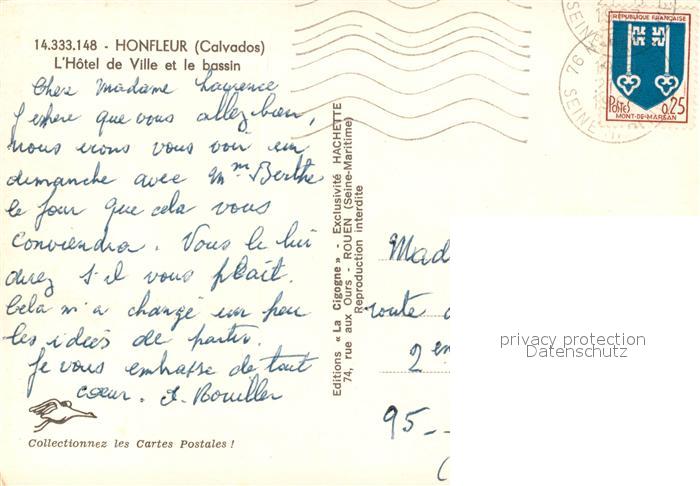 14.333.148 - HONFLEUR (Calvados)
L'Hôtel de Ville et le bassin
Chère Madame Laurence
J'espère que vous allez bien,
nous irons vous voir un
dimanche avec Mme Berthe
le jour que cela vous
conviendra. Vous le lui
direz s'il vous plait.
Cela m'a changé un peu
les idées de partir.
Je vous embrasse de tout
coeur. J. Bouiller
Collectionnez les Cartes Postales !
Editions « La Cigogne » - Exclusivité HACHETTE
74, rue aux Ours - ROUEN (Seine-Maritime)
Reproduction interdite
RÉPUBLIQUE FRANÇAISE
POSTES 0,25
MONT-DE-MARSAN
76
SEINE
Mad
route
2 en
95 -
privacy protection
Datenschutz